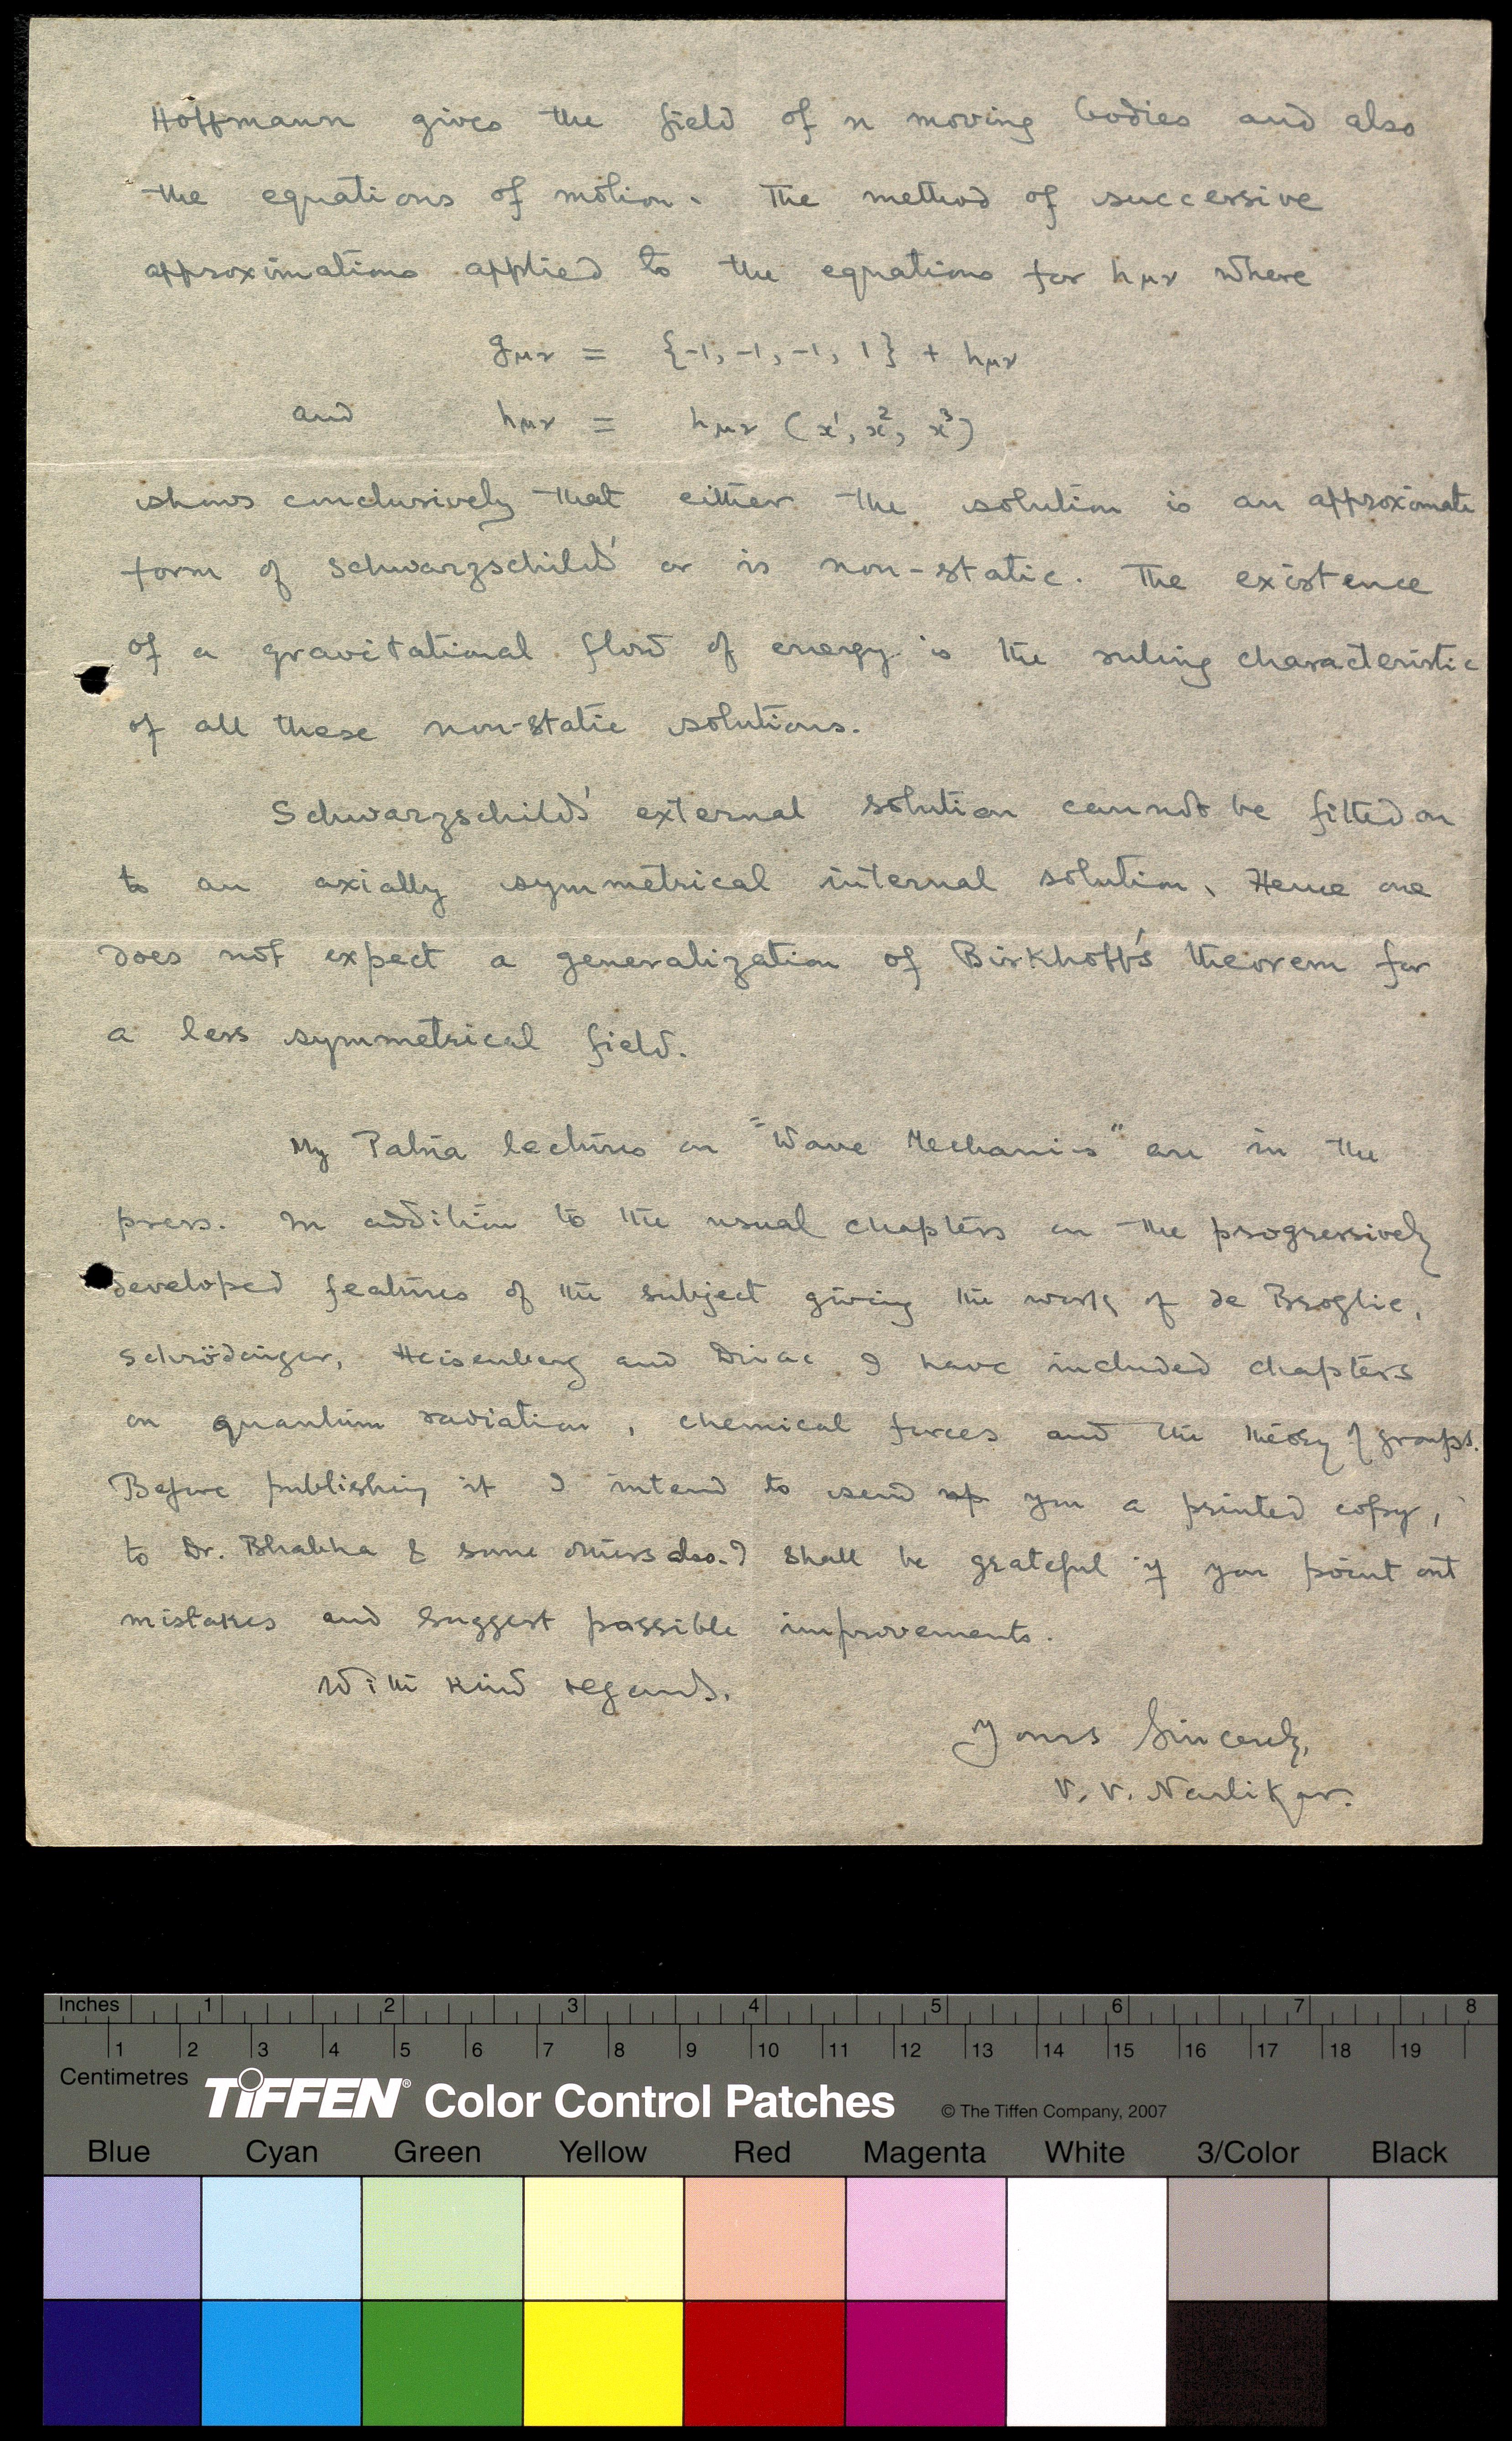 Hoffmann gives the field of n moving bodies and also
the equations of motion. The method of successive
approximations applied to the equations for hμν where
gμν = {-1, -1, -1, 1} + hμν
and hμν = hμν (x¹, x², x³)
shows conclusively that either the solution is an approximate
form of Schwarzschild's or is non-static. The existence
of a gravitational flow of energy is the ruling characteristic
of all these non-static solutions.
Schwarzschild's external solution cannot be fitted on
to an axially symmetrical internal solution. Hence one
does not expect a generalization of Birkhoff's theorem for
a less symmetrical field.
My Patna lectures on "Wave Mechanics" are in the
press. In addition to the usual chapters on the progressively
developed features of the subject giving the work of de Broglie,
Schrödinger, Heisenberg and Dirac I have included chapters
on quantum radiation, chemical forces and the theory of groups.
Before publishing it I intend to send you a printed copy,
to Dr. Bhabha & some others also. I shall be grateful if you point out
mistakes and suggest possible improvements.
With kind regards.
Yours Sincerely,
V. V. Narlikar.
Inches 1 2 3 4 5 6 7 8
1 2 3 4 5 6 7 8 9 10 11 12 13 14 15 16 17 18 19
Centimetres
TIFFEN® Color Control Patches © The Tiffen Company, 2007
Blue Cyan Green Yellow Red Magenta White 3/Color Black